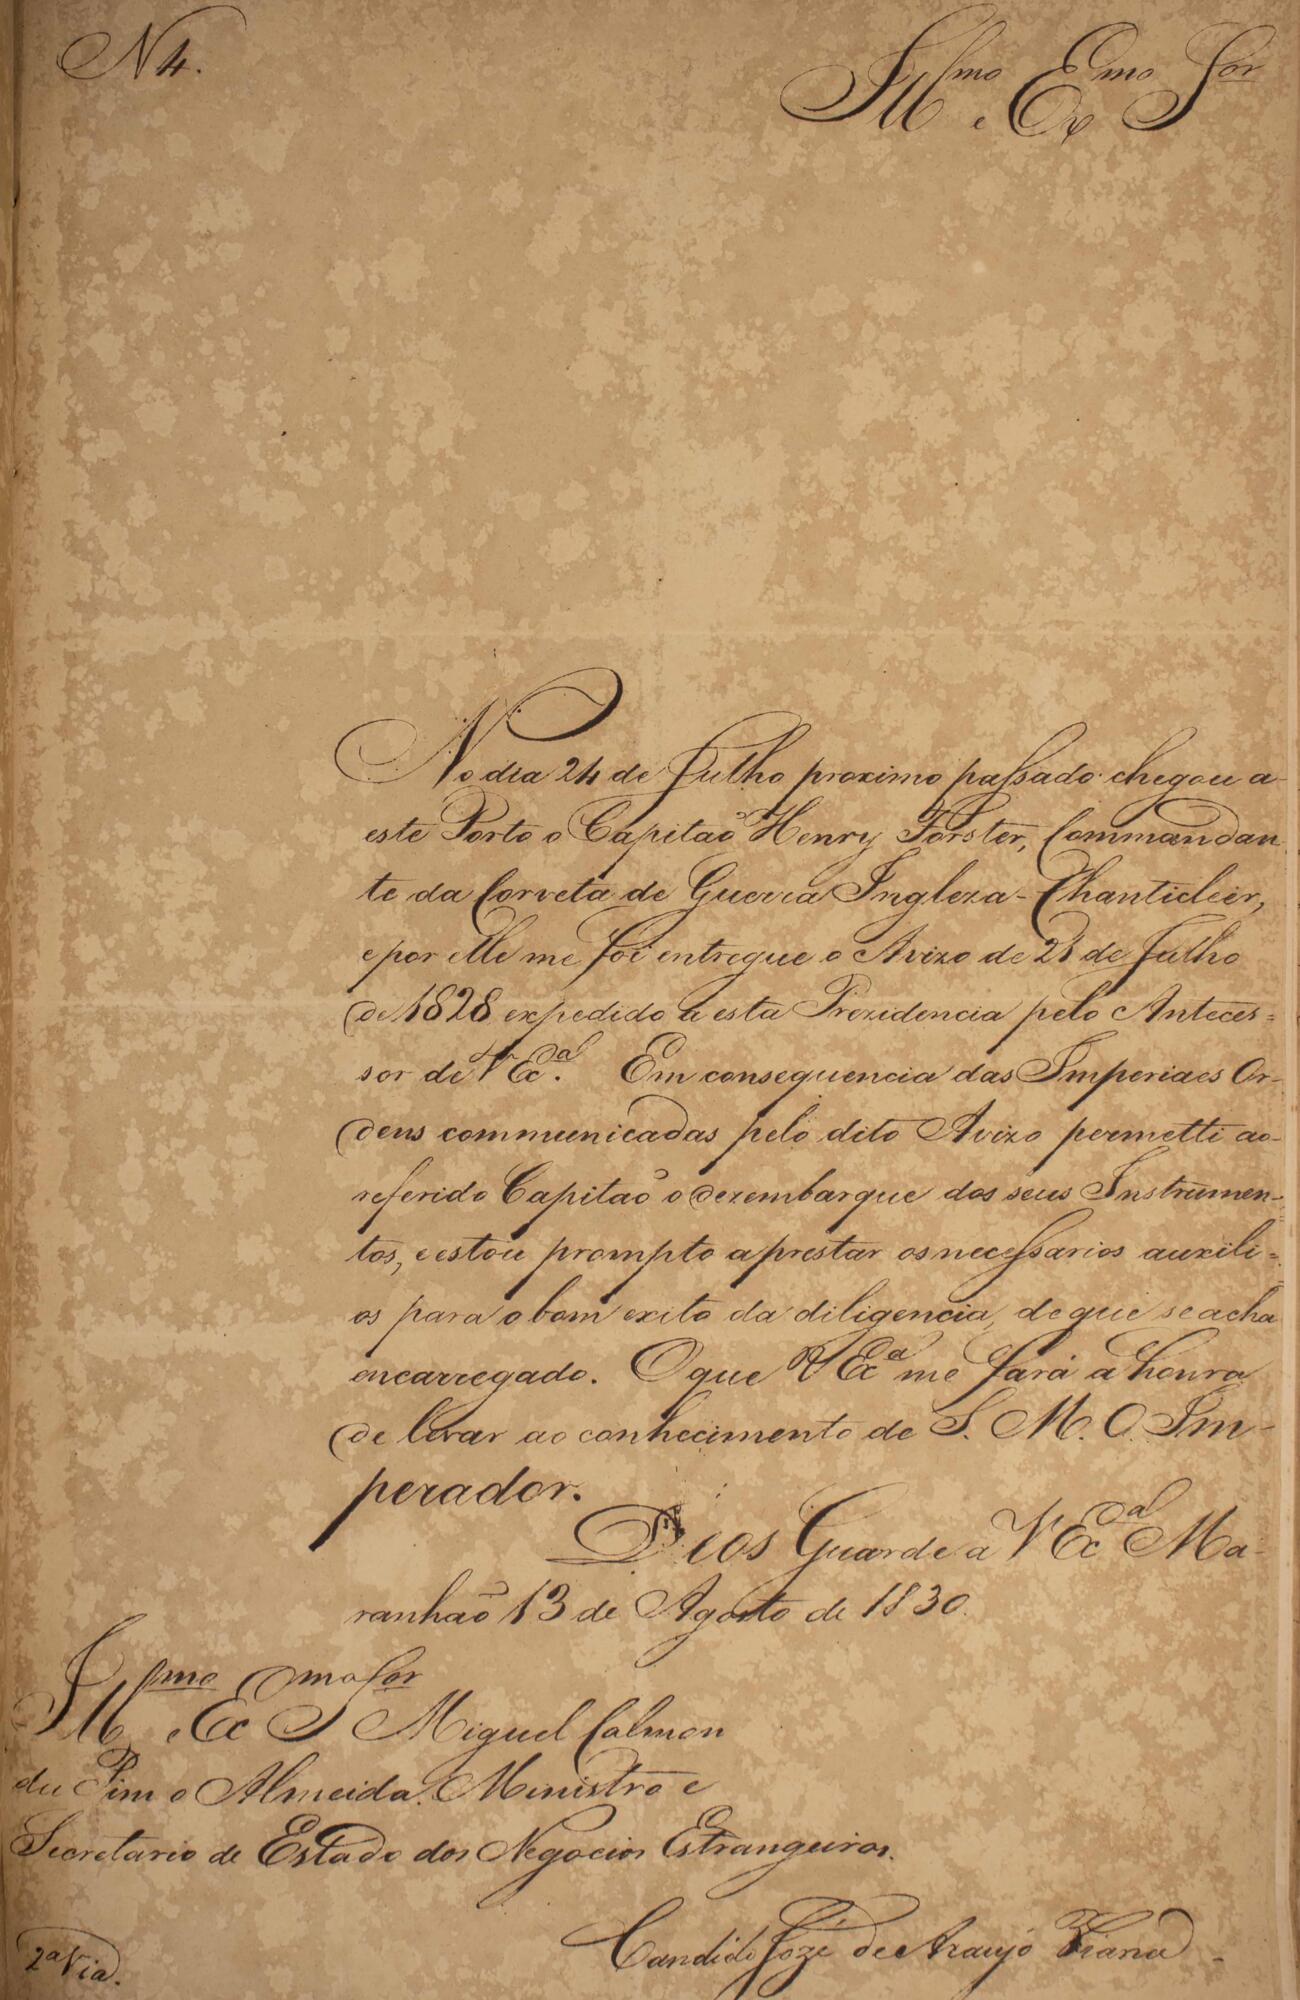 N 4.
Ill.mo e Ex.mo Sor
No dia 24 de Julho proximo passado chegou a
este Porto o Capitaõ Henry Forster, Commandan
te da Corveta de Guerra Ingleza - Chanticleer,
e por elle me foi entregue o Avizo de 21 de Julho
de 1828 expedido a esta Prezidencia pelo Anteces=
sor de V Ex.a. Em consequencia das Imperiaes Or-
dens communicadas pelo dito Avizo permetti ao
referido Capitaõ o dezembarque dos seus Instrumen-
tos, e estou prompto a prestar os necessarios auxili=
os para o bom exito da diligencia, de que se acha
encarregado. O que V Ex.a me fará a honra
de levar ao conhecimento de S. M. O Im-
perador.
Deos Guarde a V Ex.a Ma-
ranhaõ 13 de Agosto de 1830.
Ill.mo e Ex.mo Sor Miguel Calmon
du Pim e Almeida. Ministro e
Secretario de Estado dos Negocios Estrangeiros.
Candido Jozé de Araujo Vianna
2a Via.